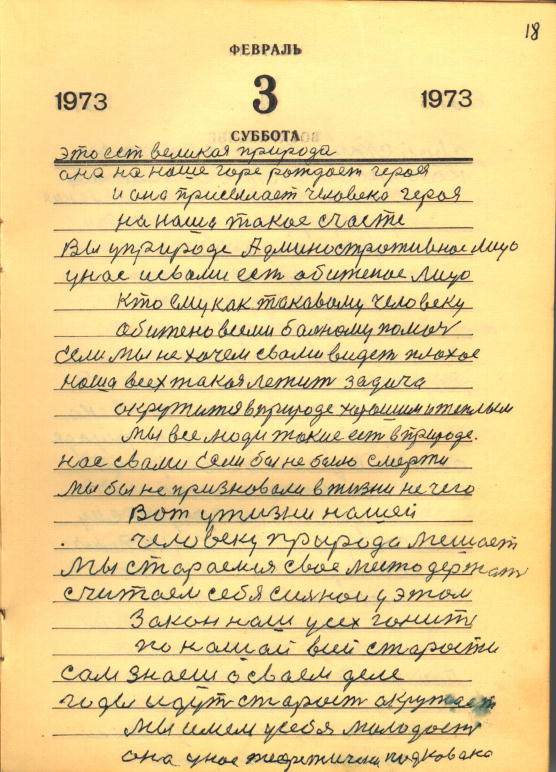 18
ФЕВРАЛЬ
1973 3 1973
СУББОТА
это ест великая природа
она на наше горе рождает героя
и она присилает человека героя
на наша такое счасте
Вы уприроде Административное лицо
унас исвами ест абитеное лицо
Кто ему как такавому человеку
абитено всеми болному помоч
Если мы не хочем свами видет плохое
наша всех такая летит задача
окружится вприроде хорошим итеплым
Мы все люди такие ест вприроде.
нас свами Если бы не было смерти
мы бы не призновали вжизни не чего
Вот ужизни нашей
человеку природа мешает
Мы стараемся свое место держат
считаем себя сияной у этом
Закон нами усех гонит
по нашай всей старости
сам знаеш о сваем деле
годы идут старост окружает
мы имем усебя молодост
она унас теоретически подкована